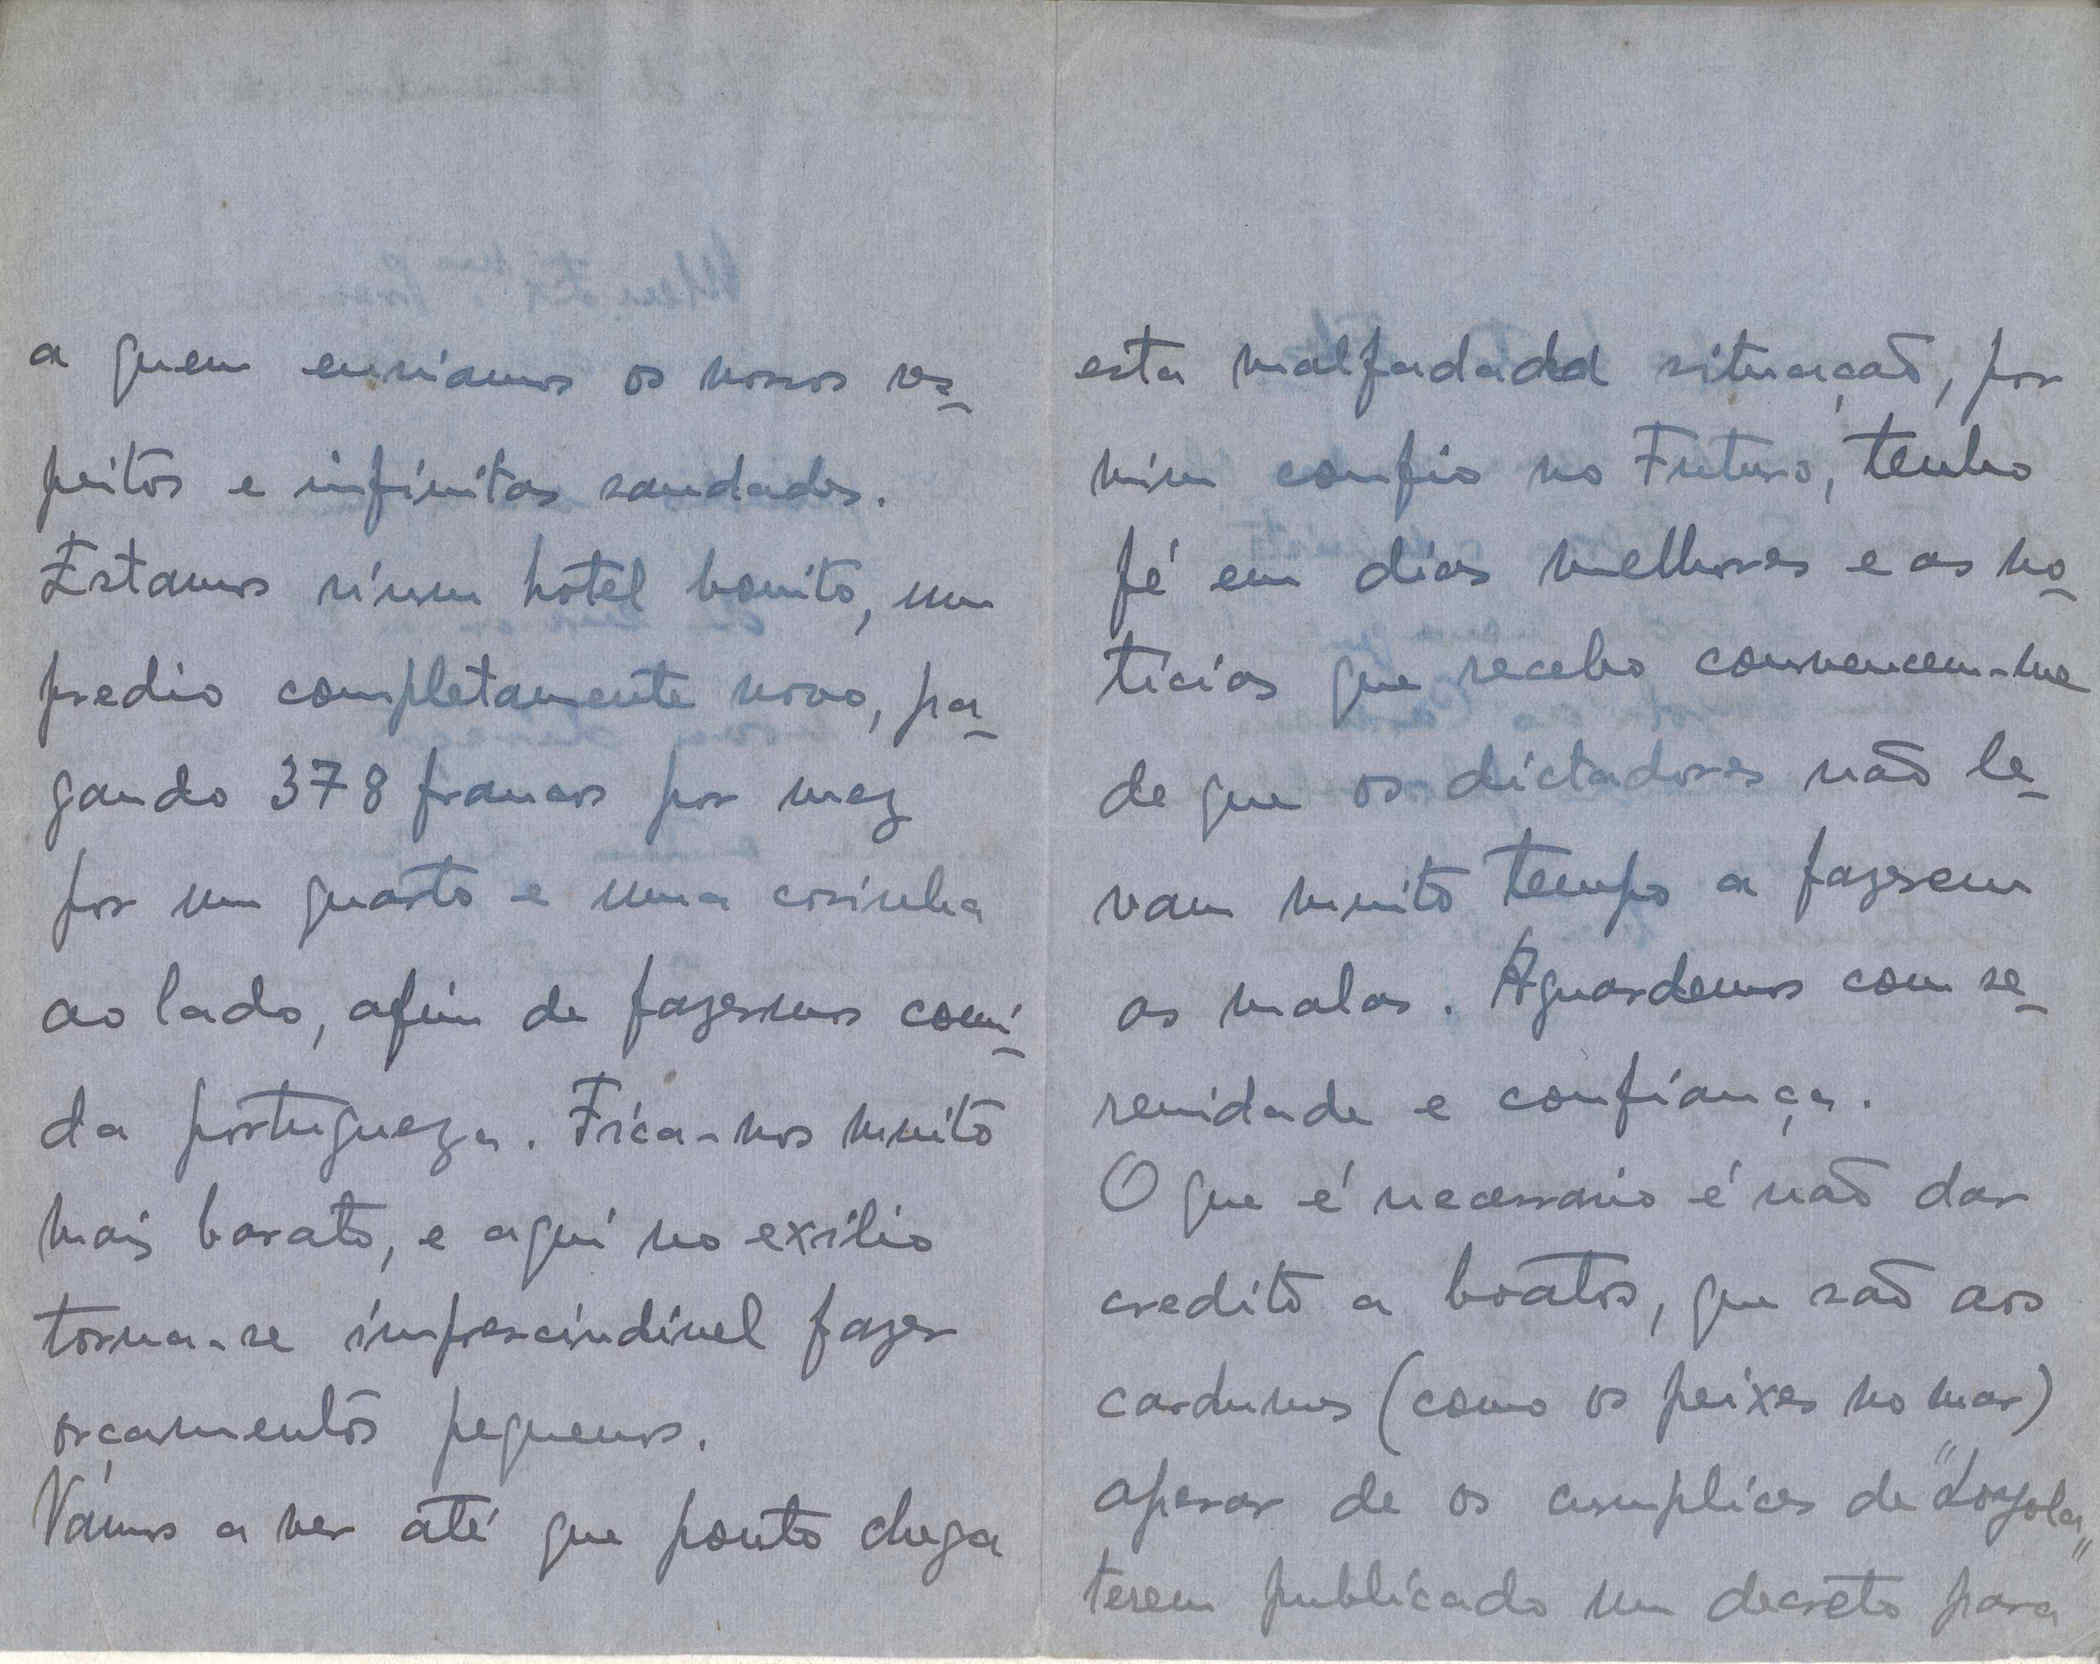 a quem enviamos os nossos res-
peitos e infinitas saudades.
Estamos n'um hotel bonito, um
predio completamente novo, pa-
gando 378 francos por mez
por um quarto e uma cosinha
ao lado, afim de fazermos comi-
da portugueza. Fica-nos muito
mais barato, e aqui no exilio
torna-se imprescindivel fazer
orçamentos pequenos.
Vâmos a ver até que ponto chega
esta malfadada situação, por
mim confio no Futuro, tenho
fé em dias melhores e as no-
ticias que recebo convencem-me
de que os dictadores não le-
vam muito tempo a fazerem
as malas. Aguardemos com se-
renidade e confiança.
O que é necessario é não dar
credito a boatos, que são aos
cardumes (como os peixes no mar)
apesar de os cumplices de "Loyola"
terem publicado um decreto para